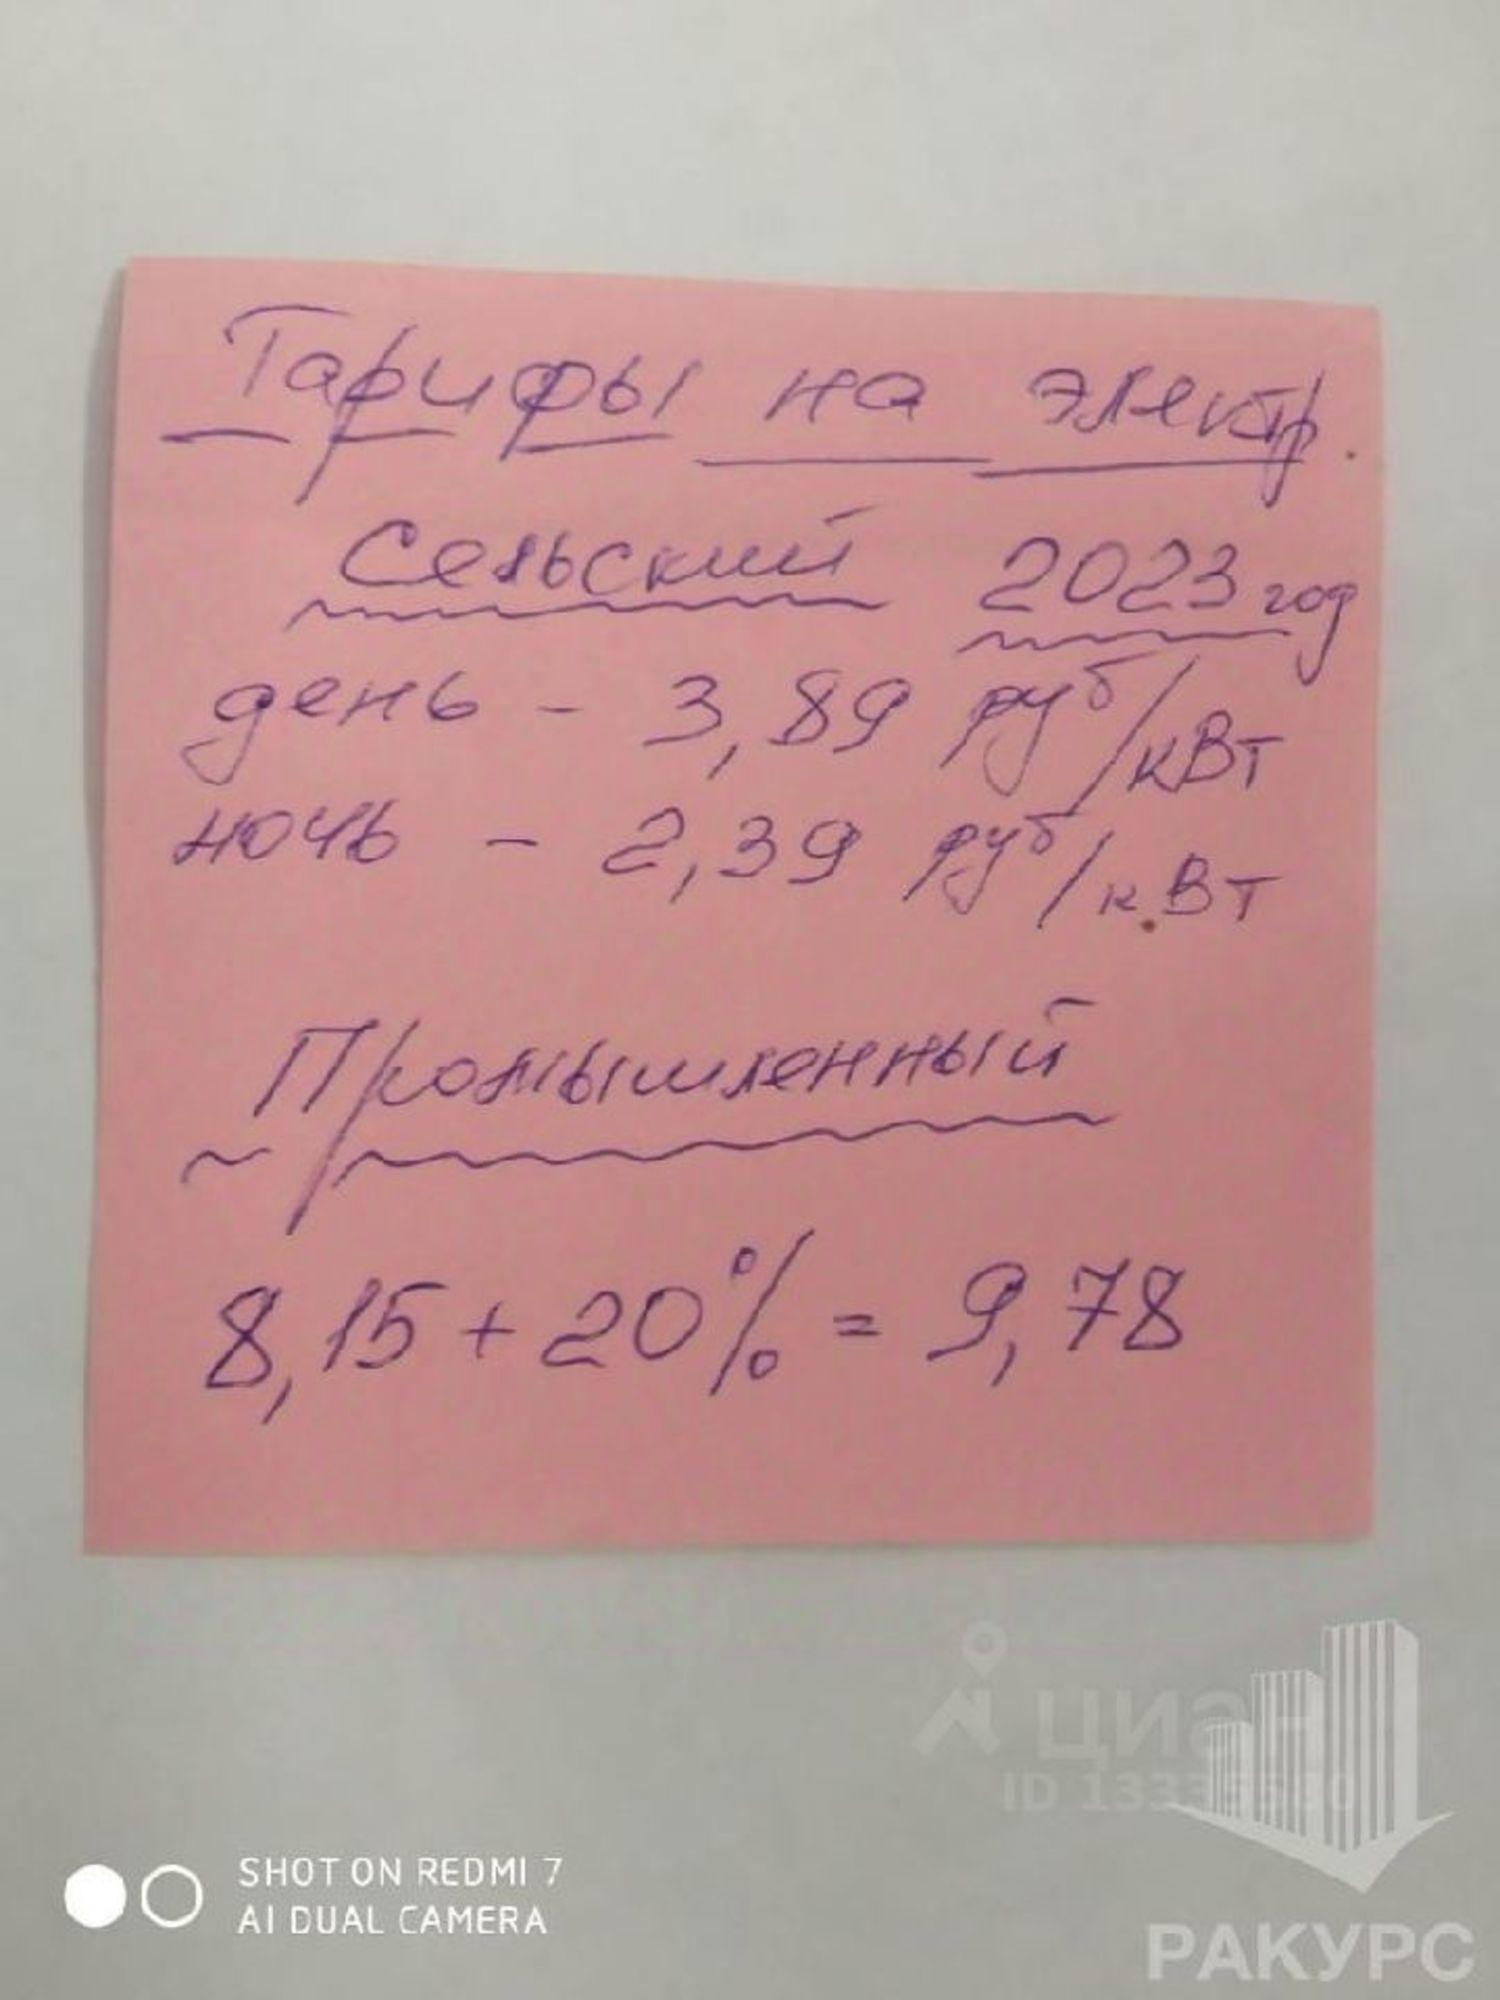 Тарифы на электр.
Сельский 2023 год
день - 3,89 руб/кВт
ночь - 2,39 руб/к.Вт
Промышленный
8,15 + 20% = 9,78
ЦИАН
ID
SHOT ON REDMI 7
AI DUAL CAMERA
РАКУРС